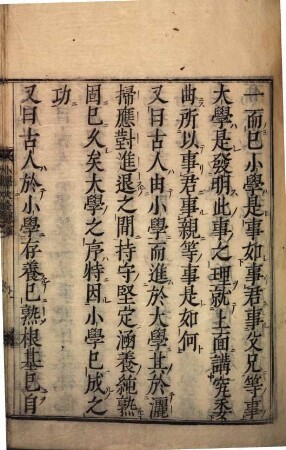 一而已小學是事如事君事父兄等事
大學是發明此事之理就上面講究委
曲所以事君事親等事是如何
又曰古人由小學而進於大學其於灑
掃應對進退之間持守堅定涵養純熟
固已久矣大學之序特因小學已成之
功
又曰古人於小學存養已熟根基已自